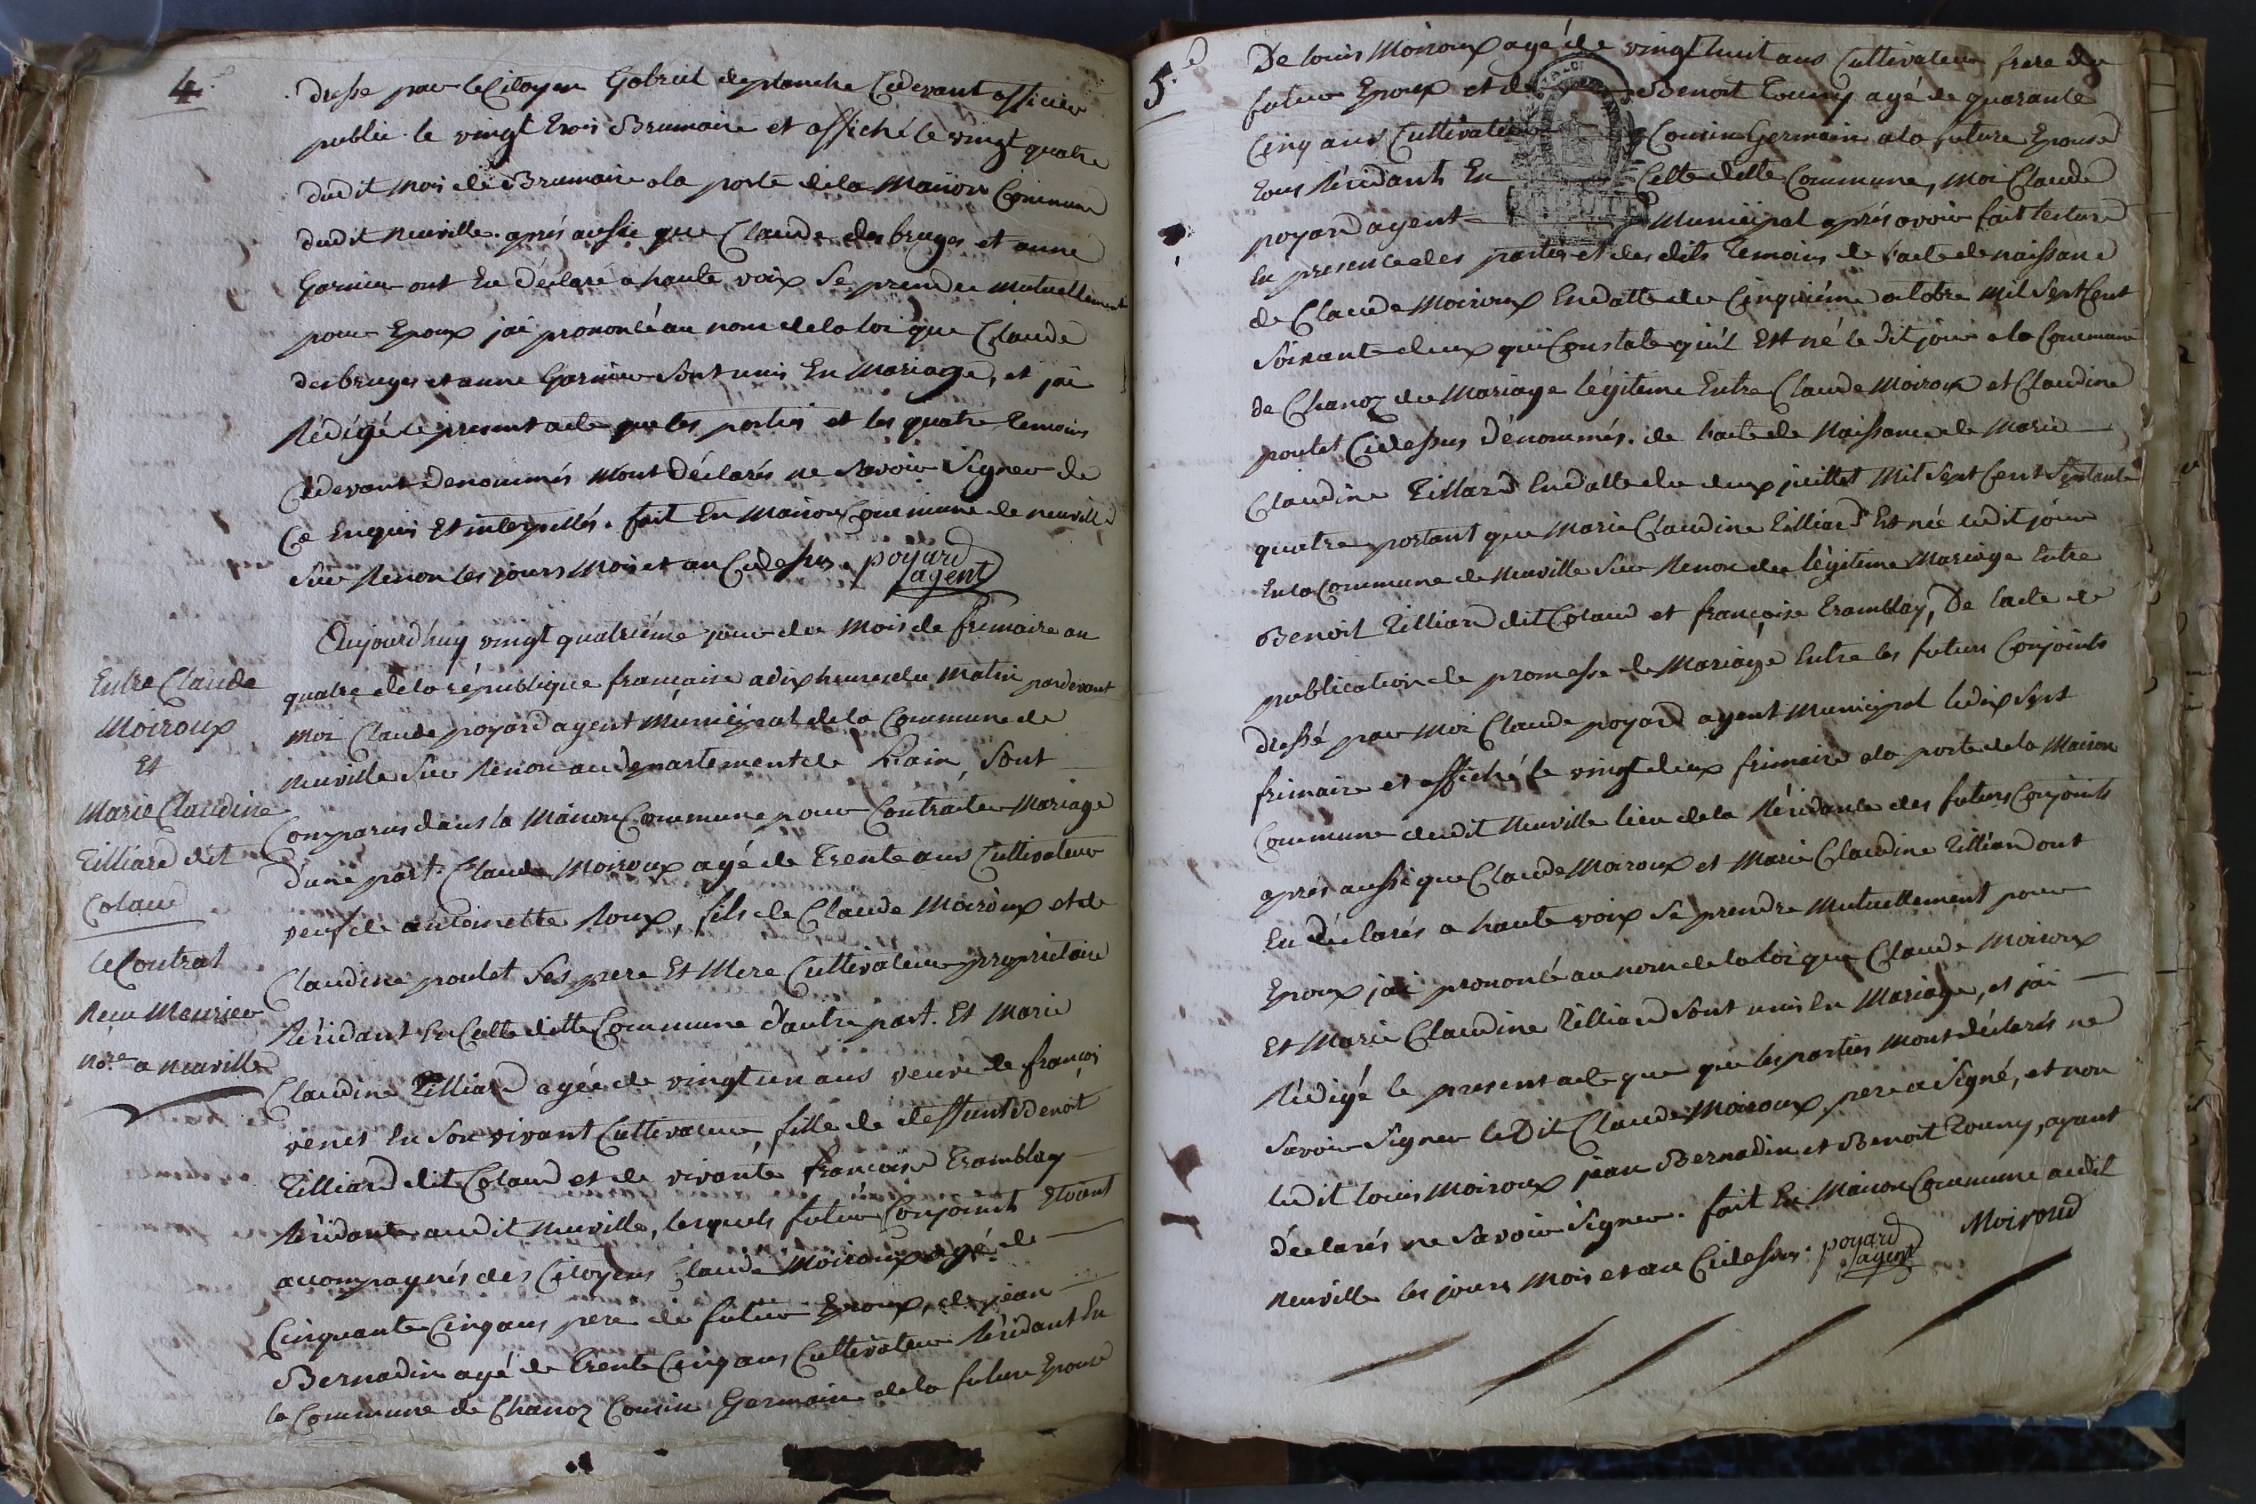 4.e
dressé par le Citoyen Gabriel deplanche Cidevant officier
public le vingt trois Brumaire et affiché le vingt quatre
dudit mois de Brumaire a la porte de la Maison Commune
dudit neuville. après aussi que Claude desbruges et anne
Garnier ont Eu déclaré a haute voix Se prendre mutuellement
pour Epoux jai prononcé au nom de la loi que Claude
desbruges et anne Garnier Sont unis En Mariage, et jai
Rédigé le present acte que les parties et les quatre Temoins
Cidevant denommés m'ont déclarés ne Savoir Signer de
Ce Enquis Et interpellés. fait En Maison Commune de neuville
Sur Renon les jours Mois et an Cidessus. poyard
agent
Entre Claude
Moiroux
Et
Marie Claudine
Tilliard dit
Colaud
le Contrat
Recu Meurier
No.re a neuville
Aujourd'huy vingt quatriéme jour du Mois de frimaire an
quatre de la république francaise a dix heures du Matin pardevant
moi Claude poyard agent Municipal de la Commune de
neuville Sur Renon au département de L'ain, Sont
Comparus dans la Maison Commune pour Contracter Mariage
d'une part. Claude Moiroux agé de Trente ans Cultivateur
veuf de antoinette Roux, fils de Claude Moiroux et de
Claudine poulet Ses pere Et Mere Cultivateur propriétaire
Résidant En Cette ditte Commune d'autre part. Et Marie
Claudine Tilliard agée de vingt un ans veuve de françois
venet En Son vivant Cultivateur, fille de deffunt Benoit
Tilliard dit Colaud et de vivante francoise Tramblay
Résidante audit neuville, lesquels futur Conjoints Etoient
accompagnés des Citoyens Claude Moiroux agé de
Cinquante Cinq ans pere du futur Epoux, de jean
Bernadin agé de Trente Cinq ans Cultivateur Résidant En
la Commune de Chanoz Cousin Germain de la future Epouse
5.e
De louis Moiroux agé de vingt huit ans Cultivateur frere du
futur Epoux et de Benoit Touny agé de quarante
Cinq ans Cultivateur Cousin Germain a la future Epouse
Tous Résidants En Cette ditte Commune, moi Claude
poyard agent Municipal après avoir fait lecture
En presence des parties et des dits Temoins de l'acte de naissance
de Claude Moiroux En datte du Cinquiéme octobre Mil Sept Cent
Soixante deux qui Constate qu'il Est né le dit jour a la Commune
de Chanoz du Mariage légitime Entre Claude Moiroux et Claudine
poulet Cidessus dénommés. de l'acte de Naissance de Marie
Claudine Tilliard En datte du deux juillet Mil Sept Cent Septante
quatre portant que Marie Claudine Tilliard Est née ledit jour
En la Commune de Neuville Sur Renon du légitime Mariage Entre
Benoit Tilliard dit Colaud et françoise Tramblay, De l'acte de
publication de promesse de Mariage Entre les futurs Conjoints
dressé par Moi Claude poyard agent Municipal le dix Sept
frimaire et affiché le vingt deux frimaire a la porte de la Maison
Commune dudit Neuville lieu de la Résidance des futurs Conjoints
apres aussi que Claude Moiroux et Marie Claudine Tilliard ont
Eu déclarés a haute voix Se prendre Mutuellement pour
Epoux jai prononcé au nom de la loi que Claude Moiroux
Et Marie Claudine Tilliard Sont unis En Mariage, et jai
Rédigé le present acte que que les parties Mont déclarés ne
Savoir Signer le Dit Claude Moiroux pere a Signé, et non
ledit louis Moiroux jean Bernadin et Benoit Touny, ayant
déclarés ne Savoir Signer. fait En Maison Commune audit
neuville les jours Mois et an Cidessus. poyard Moiroud
agent